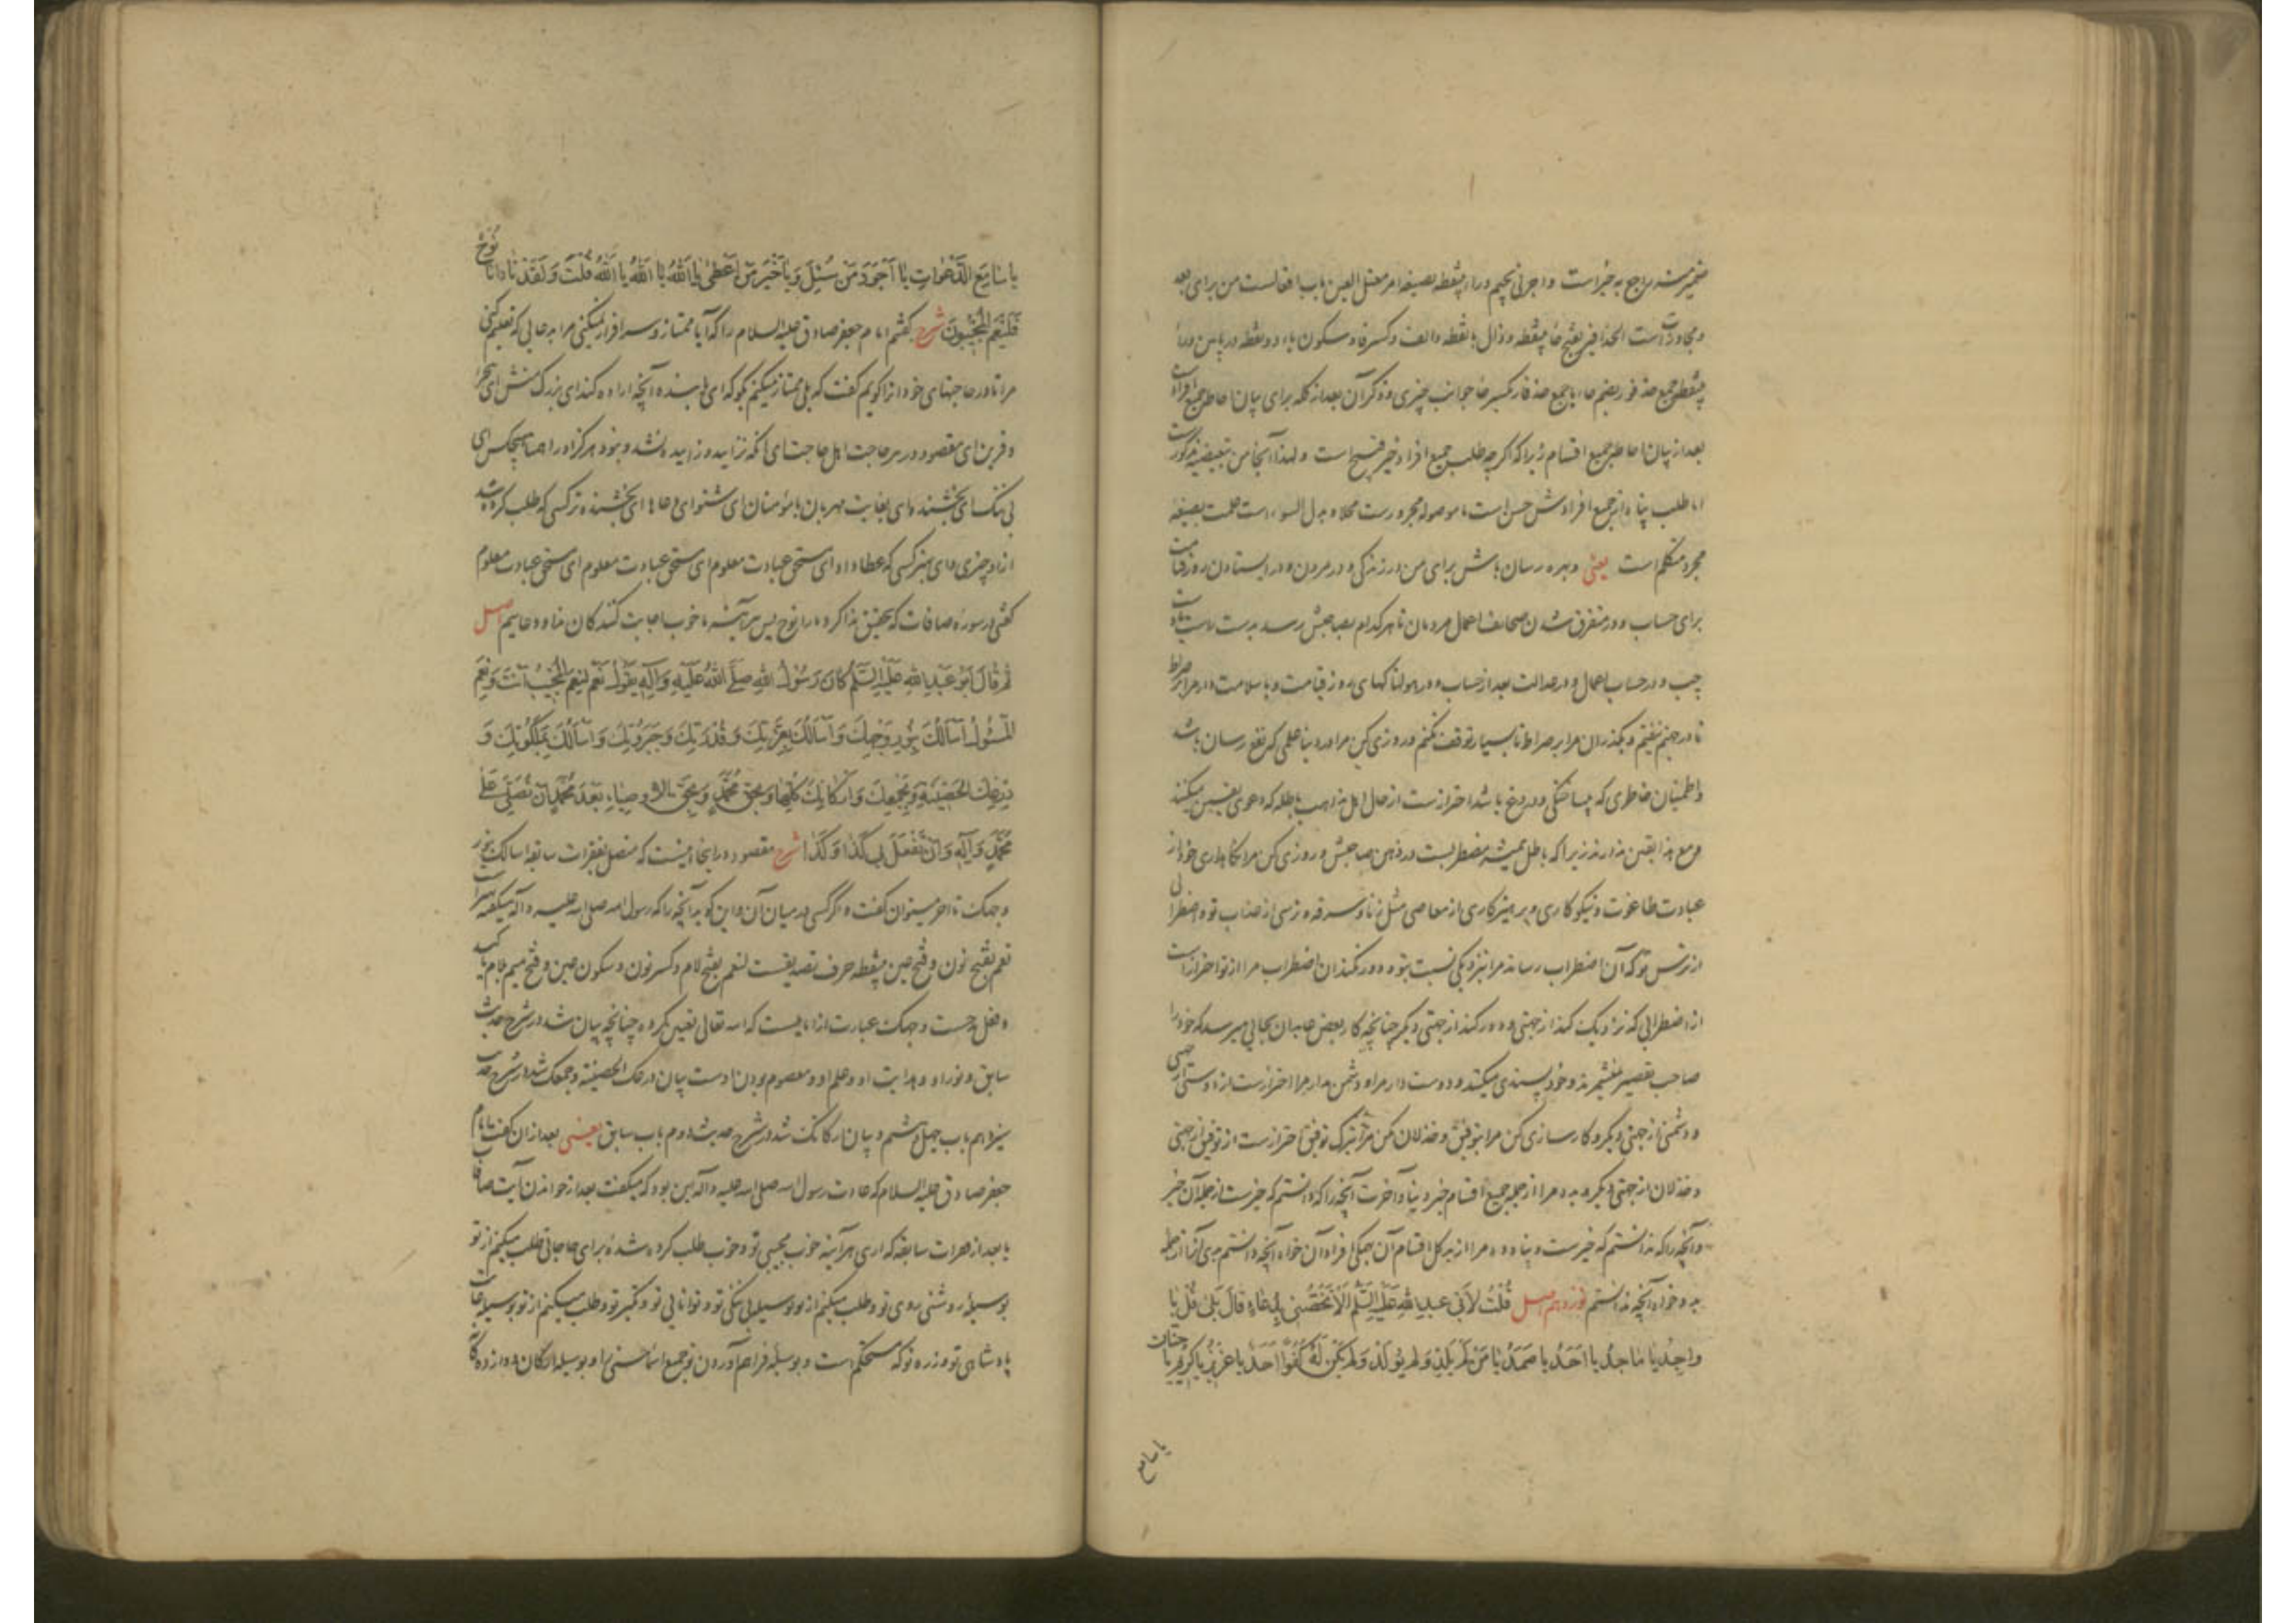 ضمیر منه راجع به خیر است و اجرنی بجیم و راء بینقطه بصیغه امر معتل العین باب افعالست من برای بعد
و مجاوزت است الحذافیر بفتح حاء بینقطه و ذال با نقطه و الف و کسر فا و سکون یاء دو نقطه در پایین و راء
بینقطه جمع حذفور بضم حاء یا جمع حذفار بکسر حا جوانب چیزی و ذکر آن بعد از کله برای بیان احاطه جمیع افراد است
بعد از بیان احاطه جمیع اقسام زیرا که اگر چه طلب جمیع افراد خیر قبیح است و لهذا آنجا من تبعیضیه مذکور است
اما طلب پناه از جمیع افراد شر حسن است ما موصوله مجرور است محلا و بدل السوء است علمت بصیغه
مجرد متکلم است یعنی و بهره رسان باش برای من در زندگی و در مردن و در ایستادن روز قیامت
برای حساب و در متفرق شدن صحائف اعمال مردمان تا هر کدام بصاحبش رسد بدست راست یا دست
چپ و در حساب اعمال و در عدالت بعد از حساب و در هولناکهای روز قیامت و با سلامت دار مرا بر صراط
تا در جهنم نیفتم و بگذران مرا بر صراط تا بسیار توقف نکنم و روزی کن مرا در دنیا علمی که نفع رسان باشد
و اطمینان خاطری که بیساختگی و دروغ باشد احتراز است از حال اهل مذاهب باطله که دعوی یقین میکنند
و مع هذا یقین ندارند زیرا که باطل همیشه مضطربست در ذهن صاحبش و روزی کن مرا نگاهداری خود از
عبادت طاغوت و نیکوکاری و پرهیزکاری از معاصی مثل زنا و سرقه و ترسی از عذاب تو و اضطرابی
از ترس تو که آن اضطراب رساند مرا بنزدیکی نسبت بتو و دور نکند آن اضطراب مرا از تو احتراز است
از اضطرابی که نزدیک کند از جهتی و دور کند از جهتی دیگر چنانچه کار بعض عابدان بجایی میرسد که خود را
صاحب تقصیر نمیشمرند و خود پسندی میکنند و دوست دار مرا و دشمن مدار مرا احتراز است از دوستی از جهتی
و دشمنی از جهتی دیگر و کارسازی کن مرا بتوفیق و خذلان مکن مرا بترک توفیق احتراز است از توفیق از جهتی
و خذلان از جهتی دیگر و بده مرا از جمله جمیع اقسام خیر دنیا و آخرت آنچه را که دانستم که خیر است از جمله آن خیر
و آنچه را که ندانستم که خیر است و پناه ده مرا از بد کل اقسام آن جمیع افراد آن خواه آنچه دانستم بدی آنرا از جمله
بد و خواه آنچه ندانستم نوزدهم اصل قُلْتُ لِأَبِي عَبْدِ اللهِ عَلَيْهِ السَّلَامُ أَلَا تَخُصُّنِي بِدُعَاءٍ قَالَ بَلَى قُلْ يَا
وَاحِدُ يَا مَاجِدُ يَا أَحَدُ يَا صَمَدُ يَا مَنْ لَمْ يَلِدْ وَلَمْ يُولَدْ وَلَمْ يَكُنْ لَهُ كُفُوًا أَحَدٌ يَا عَزِيزُ يَا كَرِيمُ يَا حَنَّانُ
یا سامع
يَا سَامِعَ الدَّعَوَاتِ يَا أَجْوَدَ مَنْ سُئِلَ وَيَا خَيْرَ مَنْ أَعْطَى يَا اَللهُ يَا اَللهُ يَا اَللهُ قُلْتَ وَلَقَدْ نَادَانَا نُوحٌ
فَلَنِعْمَ الْمُجِيبُونَ شرح گفتم امام جعفر صادق علیه السلام را که آیا ممتاز و سرافراز نمیکنی مرا به دعایی که تعلیم کنی
مرا تا در حاجتهای خود آنرا گویم گفت که بلی ممتاز میکنم بگو که ای یابنده آنچه اراده کند ای بزرگ منش ای یگانه
و قرین ای مقصود در هر حاجت اهل حاجت ای آنکه نزایید و زاییده نشد و نبود هرگز او را همتا هیچکس ای
بی ننگ ای بخشنده ای بغایت مهربان با مؤمنان ای شنوای دعاها ای بخشنده تر کسی که طلب کرده شد
از او چیزی و ای بهتر کسی که عطا داد ای مستحق عبادت معلوم ای مستحق عبادت معلوم ای مستحق عبادت معلوم
گفتی در سوره صافات که بتحقیق ندا کرد ما را نوح پس هر آینه ما خوب اجابت کنندگان ندا و دعاییم اصل
ثُمَّ قَالَ أَبُو عَبْدِ اللهِ عَلَيْهِ السَّلَمُ كَانَ رَسُولُ اللهِ صَلَّى اللهُ عَلَيْهِ وَآلِهِ يَقُولُ نَعَمْ لَنِعْمَ الْمُجِيبُ أَنْتَ وَنِعْمَ
الْمَسْئُولُ أَسْأَلُكَ بِنُورِ وَجْهِكَ وَأَسْأَلُكَ بِعِزَّتِكَ وَقُدْرَتِكَ وَجَبَرُوتِكَ وَأَسْأَلُكَ بِمَلَكُوتِكَ وَ
دِرْعِكَ الْحَصِينَةِ وَبِجَمْعِكَ وَأَرْكَانِكَ كُلِّهَا وَبِحَقِّ مُحَمَّدٍ وَبِحَقِّ الْأَوْصِيَاءِ بَعْدَ مُحَمَّدٍ أَنْ تُصَلِّيَ عَلَى
مُحَمَّدٍ وَآلِهِ وَأَنْ تَفْعَلَ بِي كَذَا وَكَذَا شرح مقصود در اینجا اینست که متصل بفقرات سابقه اسالک بنور
وجهک تا آخر میتوان گفت و اگر کسی در میان آن و این گوید آنچه را که رسول الله صلی الله علیه و آله میگفت
نعم بفتح نون و فتح عین بینقطه حرف تصدیقست لنعم بفتح لام و کسر نون و سکون عین و فتح میم لام تاکید
و فعل مدحست وجهک عبارت از امامیست که الله تعالی تعیین کرده چنانچه بیان شد در شرح حدیث
سابق و نور او هدایت او و علم او و معصوم بودن اوست بیان درعک الحصینة و جمعک شد در شرح حدیث
سیزدهم باب چهل و هشتم و بیان ارکانک شد در شرح حدیث دوم باب سابق یعنی بعد از آن گفت امام
جعفر صادق علیه السلام که عادت رسول الله صلی الله علیه و آله این بود که میگفت بعد از خواندن آیت صافات
یا بعد از فقرات سابقه که اری هر آینه خوب مجیبی تو و خوب طلب کرده شده برای حاجاتی طلب میکنم از تو
بوسیله روشنی روی تو و طلب میکنم از تو بوسیله بی ننگی تو و توانایی تو و تکبر تو و طلب میکنم از تو بوسیله
پادشاهی تو و زره تو که مستحکم است و بوسیله فراهم آوردن تو جمیع اسماء حسنی را و بوسیله ارکان دوازده‌گانه